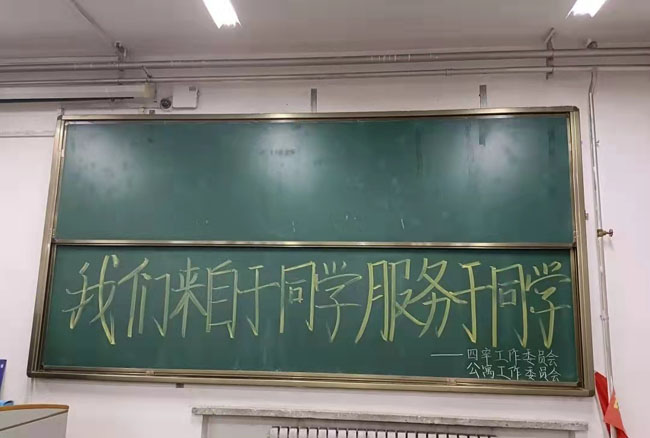 我们来自于同学服务于同学
——四牢工作委员会
公寓工作委员会